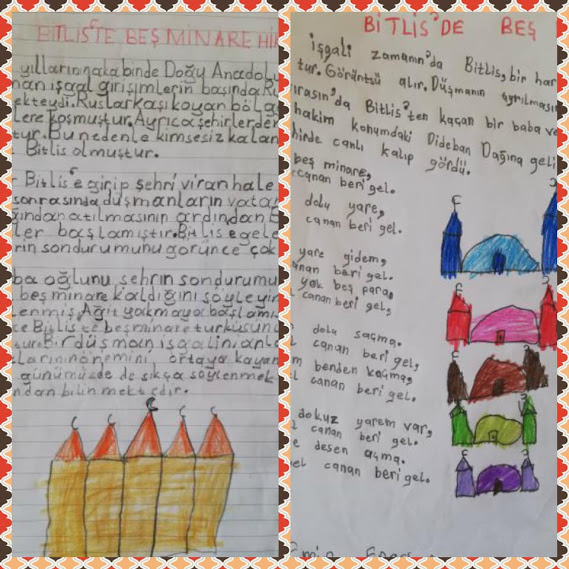 BİTLİS'TE BEŞ MİNARE Hİ
yıllarının akabinde Doğu Anadolu
nan işgal girişimlerin başında Ru
ekteydi. Ruslar kaşı koyan bölg
lere koşmuştur. Ayrıca şehirlerden
tur. Bu nedenle kimsesiz kalan
Bitlis olmuştur.
Bitlis'e girip şehri viran hale
sonrasında düşmanların vatan
ğından atılmasının ardından B
ler başlamıştır. Bitlis e gele
rin sondurumunu görünce çok
ba oğlunu şehrin sondurumu
beş minare kaldığını söyleyin
lenmiş. Ağıt yakmaya başlamış
te Bitlis'te beş minare türküsünü
tur. Bir düşman işgalini anla
larının önemini, ortaya koyan
günümüzde de sıkça söylenmek
ndan bilinmektedir.
BİTLİS'DE BEŞ
işgali zamanın'da Bitlis, bir har
tur. Görüntü alır. Düşmanın ayrılması
ırasın'da Bitlis'ten kaçan bir baba ve
hakim konumdaki Dideban Dağına geli
hirde canlı kalıp gördü.
beş minare,
canan beri gel.
dolu yare,
canan beri gel.
yare gidem,
anan beri gel.
yok beş para,
canan beri gel,
dolu saçma.
l canan beri gel,
m benden kaçma,
l canan beri gel.
dokuz yarem var,
l canan beri gel.
e desen açma.
el canan beri gel.